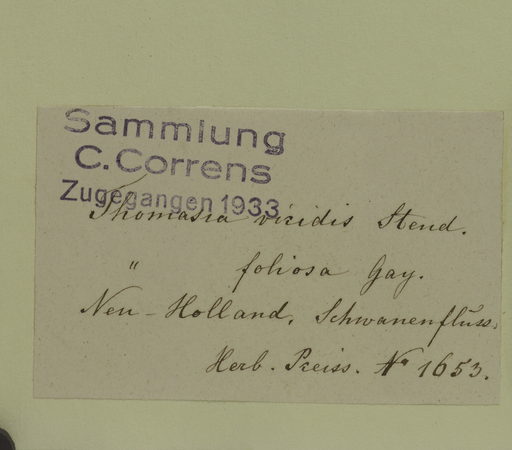 Sammlung
C. Correns
Zugegangen 1933
Thomasia viridis Steud.
" foliosa Gay.
Neu-Holland, Schwanenfluss.
Herb. Preiss. No 1653.